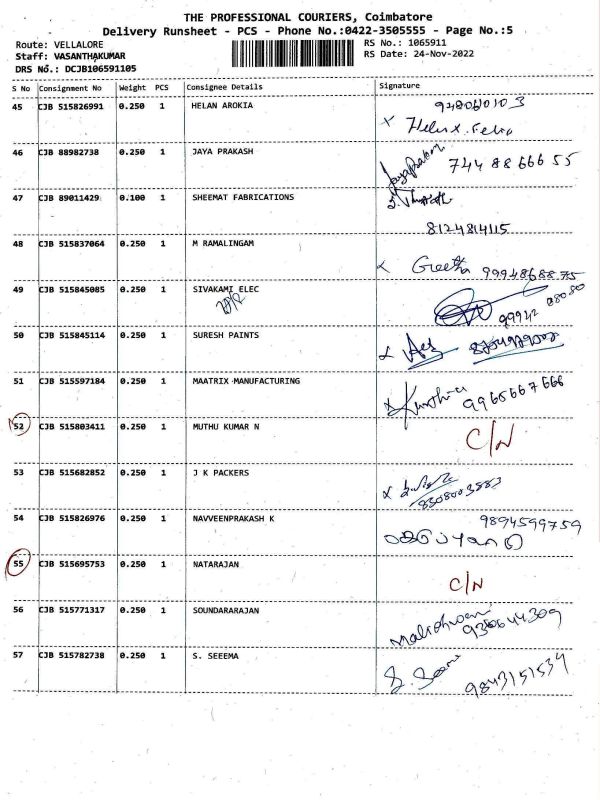 THE PROFESSIONAL COURIERS, Coimbatore
Delivery Runsheet - PCS - Phone No.:0422-3505555 - Page No.:5
Route: VELLALORE RS No.: 1065911
Staff: VASANTHAKUMAR RS Date: 24-Nov-2022
DRS No.: DCJB106591105
S No Consignment No Weight PCS Consignee Details Signature
45 CJB 515826991 0.250 1 HELAN AROKIA
46 CJB 88982738 0.250 1 JAYA PRAKASH
Jayaprakash 744 88 666 55
47 CJB 89011429 0.100 1 SHEEMAT FABRICATIONS
8124814115
48 CJB 515837064 0.250 1 M RAMALINGAM
Geetha 9994868875
49 CJB 515845085 0.250 1 SIVAKAMI ELEC
99942 08080
50 CJB 515845114 0.250 1 SURESH PAINTS
51 CJB 515597184 0.250 1 MAATRIX MANUFACTURING
9965667666
52 CJB 515803411 0.250 1 MUTHU KUMAR N
C/N
53 CJB 515682852 0.250 1 J K PACKERS
8508003583
54 CJB 515826976 0.250 1 NAVVEENPRAKASH K
9894599759
55 CJB 515695753 0.250 1 NATARAJAN
C/N
56 CJB 515771317 0.250 1 SOUNDARARAJAN
57 CJB 515782738 0.250 1 S. SEEEMA
9843151534